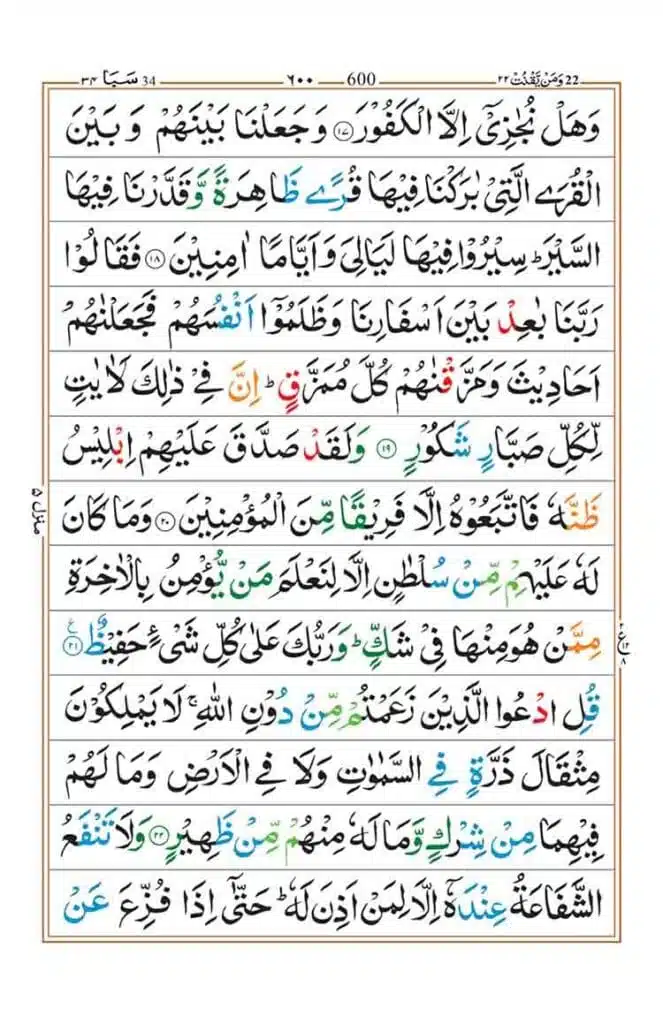 ۲۲ وَمَنْ يَّقْنُتْ 22 600 ۶۰۰ 34 سَبَا ۳۴
وَهَلْ نُجٰزِیْۤ اِلَّا الْكَفُوْرَ ۱۷ وَجَعَلْنَا بَیْنَهُمْ وَ بَیْنَ
الْقُرَی الَّتِیْ بٰرَكْنَا فِیْهَا قُرًی ظَاهِرَةً وَّقَدَّرْنَا فِیْهَا
السَّیْرَ ؕ سِیْرُوْا فِیْهَا لَیَالِیَ وَاَیَّامًا اٰمِنِیْنَ ۱۸ فَقَالُوْا
رَبَّنَا بٰعِدْ بَیْنَ اَسْفَارِنَا وَظَلَمُوْۤا اَنْفُسَهُمْ فَجَعَلْنٰهُمْ
اَحَادِیْثَ وَمَزَّقْنٰهُمْ كُلَّ مُمَزَّقٍ ؕ اِنَّ فِیْ ذٰلِكَ لَاٰیٰتٍ
لِّكُلِّ صَبَّارٍ شَكُوْرٍ ۱۹ وَلَقَدْ صَدَّقَ عَلَیْهِمْ اِبْلِیْسُ
ظَنَّهٗ فَاتَّبَعُوْهُ اِلَّا فَرِیْقًا مِّنَ الْمُؤْمِنِیْنَ ۲۰ وَمَا كَانَ
منزل ۵
لَهٗ عَلَیْهِمْ مِّنْ سُلْطٰنٍ اِلَّا لِنَعْلَمَ مَنْ یُّؤْمِنُ بِالْاٰخِرَةِ
مِمَّنْ هُوَ مِنْهَا فِیْ شَكٍّ ؕ وَرَبُّكَ عَلٰی كُلِّ شَیْءٍ حَفِیْظٌ ۲۱ ع
قُلِ ادْعُوا الَّذِیْنَ زَعَمْتُمْ مِّنْ دُوْنِ اللّٰهِ ۚ لَا یَمْلِكُوْنَ
مِثْقَالَ ذَرَّةٍ فِی السَّمٰوٰتِ وَلَا فِی الْاَرْضِ وَمَا لَهُمْ
فِیْهِمَا مِنْ شِرْكٍ وَّمَا لَهٗ مِنْهُمْ مِّنْ ظَهِیْرٍ ۲۲ وَلَا تَنْفَعُ
الشَّفَاعَةُ عِنْدَهٗۤ اِلَّا لِمَنْ اَذِنَ لَهٗ ؕ حَتّٰۤی اِذَا فُزِّعَ عَنْ